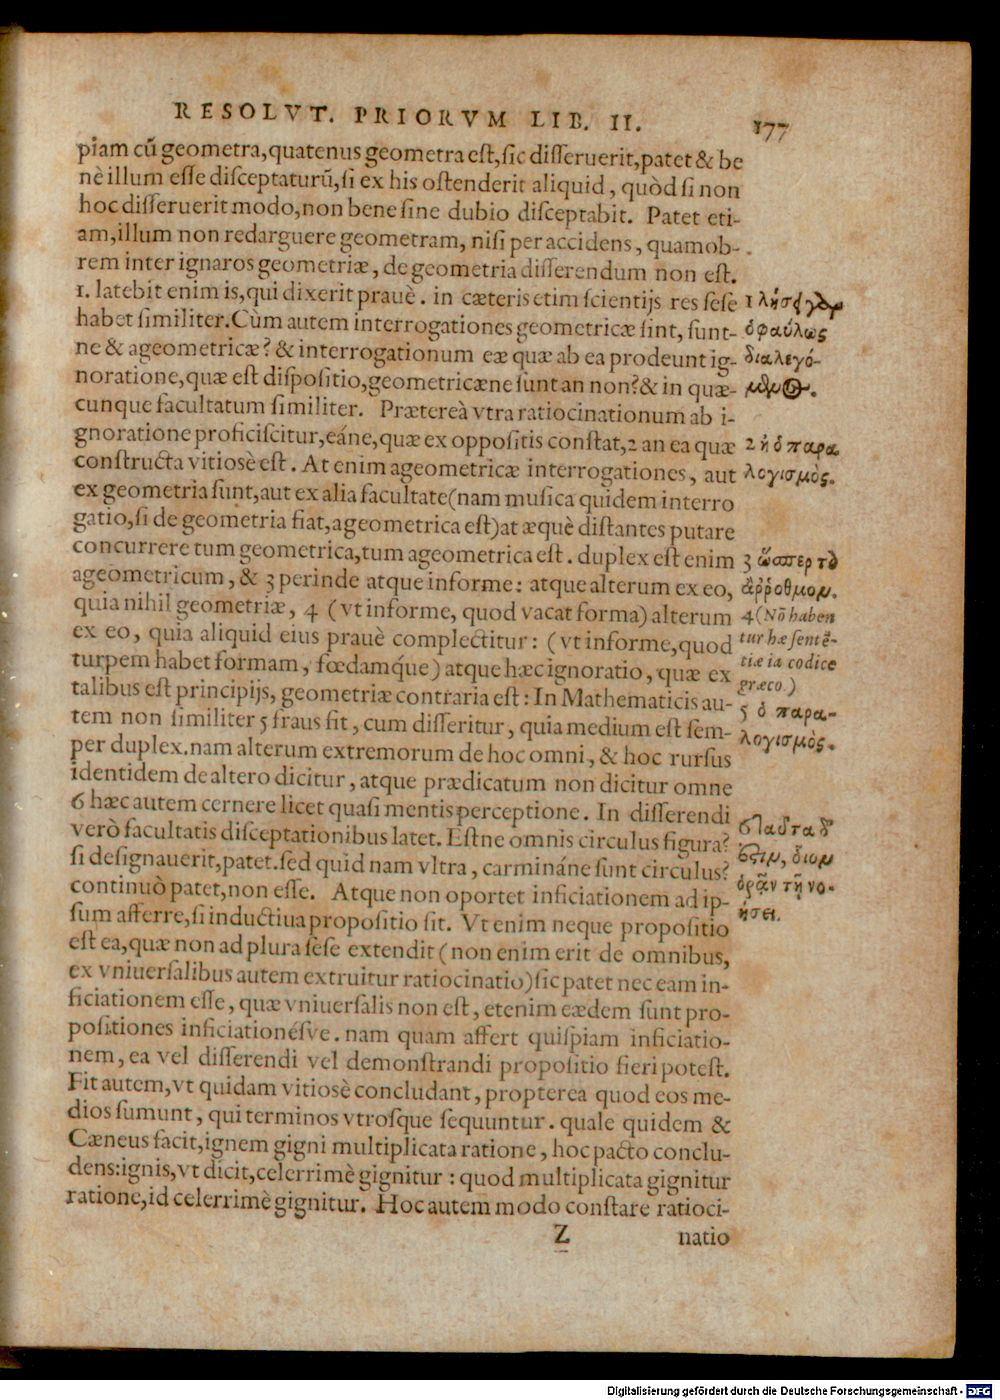 RESOLVT. PRIORVM LIB. II. 177
piam cū geometra, quatenus geometra est, sic disseruerit, patet & be
nè illum esse disceptaturū, si ex his ostenderit aliquid, quòd si non
hoc disseruerit modo, non bene sine dubio disceptabit. Patet eti-
am, illum non redarguere geometram, nisi per accidens, quamob-
rem inter ignaros geometriæ, de geometria disserendum non est.
1. latebit enim is, qui dixerit prauè. in cæteris etim scientijs res sese
habet similiter. Cùm autem interrogationes geometricæ sint, sunt-
ne & ageometricæ? & interrogationum eæ quæ ab ea prodeunt ig-
noratione, quæ est dispositio, geometricæne sunt an non? & in quæ-
cunque facultatum similiter. Prætereà vtra ratiocinationum ab i-
gnoratione proficiscitur, eáne, quæ ex oppositis constat, 2 an ea quæ
constructa vitiosè est. At enim ageometricæ interrogationes, aut
ex geometria sunt, aut ex alia facultate (nam musica quidem interro
gatio, si de geometria fiat, ageometrica est) at æquè distantes putare
concurrere tum geometrica, tum ageometrica est. duplex est enim
ageometricum, & 3 perinde atque informe: atque alterum ex eo,
quia nihil geometriæ, 4 (vt informe, quod vacat forma) alterum
ex eo, quia aliquid eius prauè complectitur: (vt informe, quod
turpem habet formam, fœdamq́ue) atque hæc ignoratio, quæ ex
talibus est principijs, geometriæ contraria est: In Mathematicis au-
tem non similiter 5 fraus fit, cum disseritur, quia medium est sem-
per duplex. nam alterum extremorum de hoc omni, & hoc rursus
identidem de altero dicitur, atque prædicatum non dicitur omne
6 hæc autem cernere licet quasi mentis perceptione. In disserendi
verò facultatis disceptationibus latet. Estne omnis circulus figura?
si designauerit, patet. sed quid nam vltra, carmináne sunt circulus?
continuò patet, non esse. Atque non oportet inficiationem ad ip-
sum afferre, si inductiua propositio sit. Vt enim neque propositio
est ea, quæ non ad plura sese extendit (non enim erit de omnibus,
ex vniuersalibus autem extruitur ratiocinatio) sic patet nec eam in-
ficiationem esse, quæ vniuersalis non est, etenim eædem sunt pro-
positiones inficiationésve. nam quam affert quispiam inficiatio-
nem, ea vel disserendi vel demonstrandi propositio fieri potest.
Fit autem, vt quidam vitiosè concludant, propterea quod eos me-
dios sumunt, qui terminos vtrosque sequuntur. quale quidem &
Cæneus facit, ignem gigni multiplicata ratione, hoc pacto conclu-
dens: ignis, vt dicit, celerrimè gignitur: quod multiplicata gignitur
ratione, id celerrimè gignitur. Hoc autem modo constare ratioci-
Z natio
1 λήσει γὰρ
ὁ φαύλως
διαλεγό-
μενος.
2 ἢ ὁ παρα
λογισμὸς.
3 ὥσπερ τὸ
ἄῤῥυθμον.
4 (Nō haben
tur hæ sentē-
tiæ in codice
græco.)
5 ὁ παρα-
λογισμὸς.
6 ταῦτα δ'
ἔστιν, οἷον
ὁρᾶν τῇ νο-
ήσει.
Digitalisierung gefördert durch die Deutsche Forschungsgemeinschaft - DFG